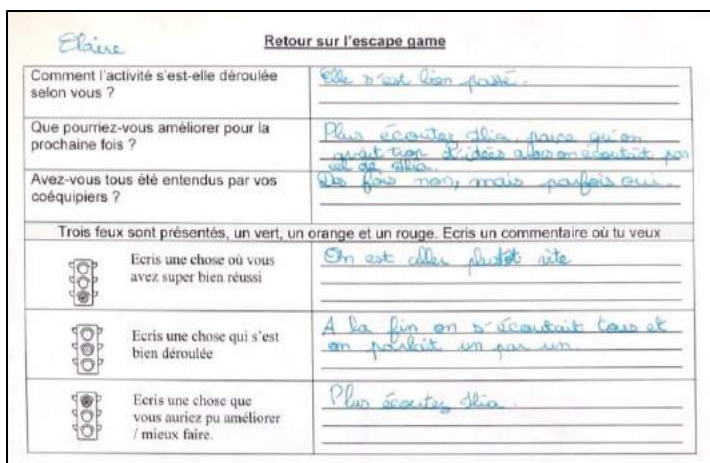 Claire
Retour sur l'escape game
Comment l'activité s'est-elle déroulée
selon vous ?
Elle s'est bien passé.
Que pourriez-vous améliorer pour la
prochaine fois ?
Plus écoutez Ilia, parce qu'on
avait trop d'idées alors on écoutait pas
de Ilia.
Avez-vous tous été entendus par vos
coéquipiers ?
Des fois non, mais parfois oui.
Trois feux sont présentés, un vert, un orange et un rouge. Ecris un commentaire où tu veux
Ecris une chose où vous
avez super bien réussi
On est aller plutôt vite
Ecris une chose qui s'est
bien déroulée
A la fin on s'écoutait tous et
on parlait un par un.
Ecris une chose que
vous auriez pu améliorer
/ mieux faire.
Plus écoutez Ilia.